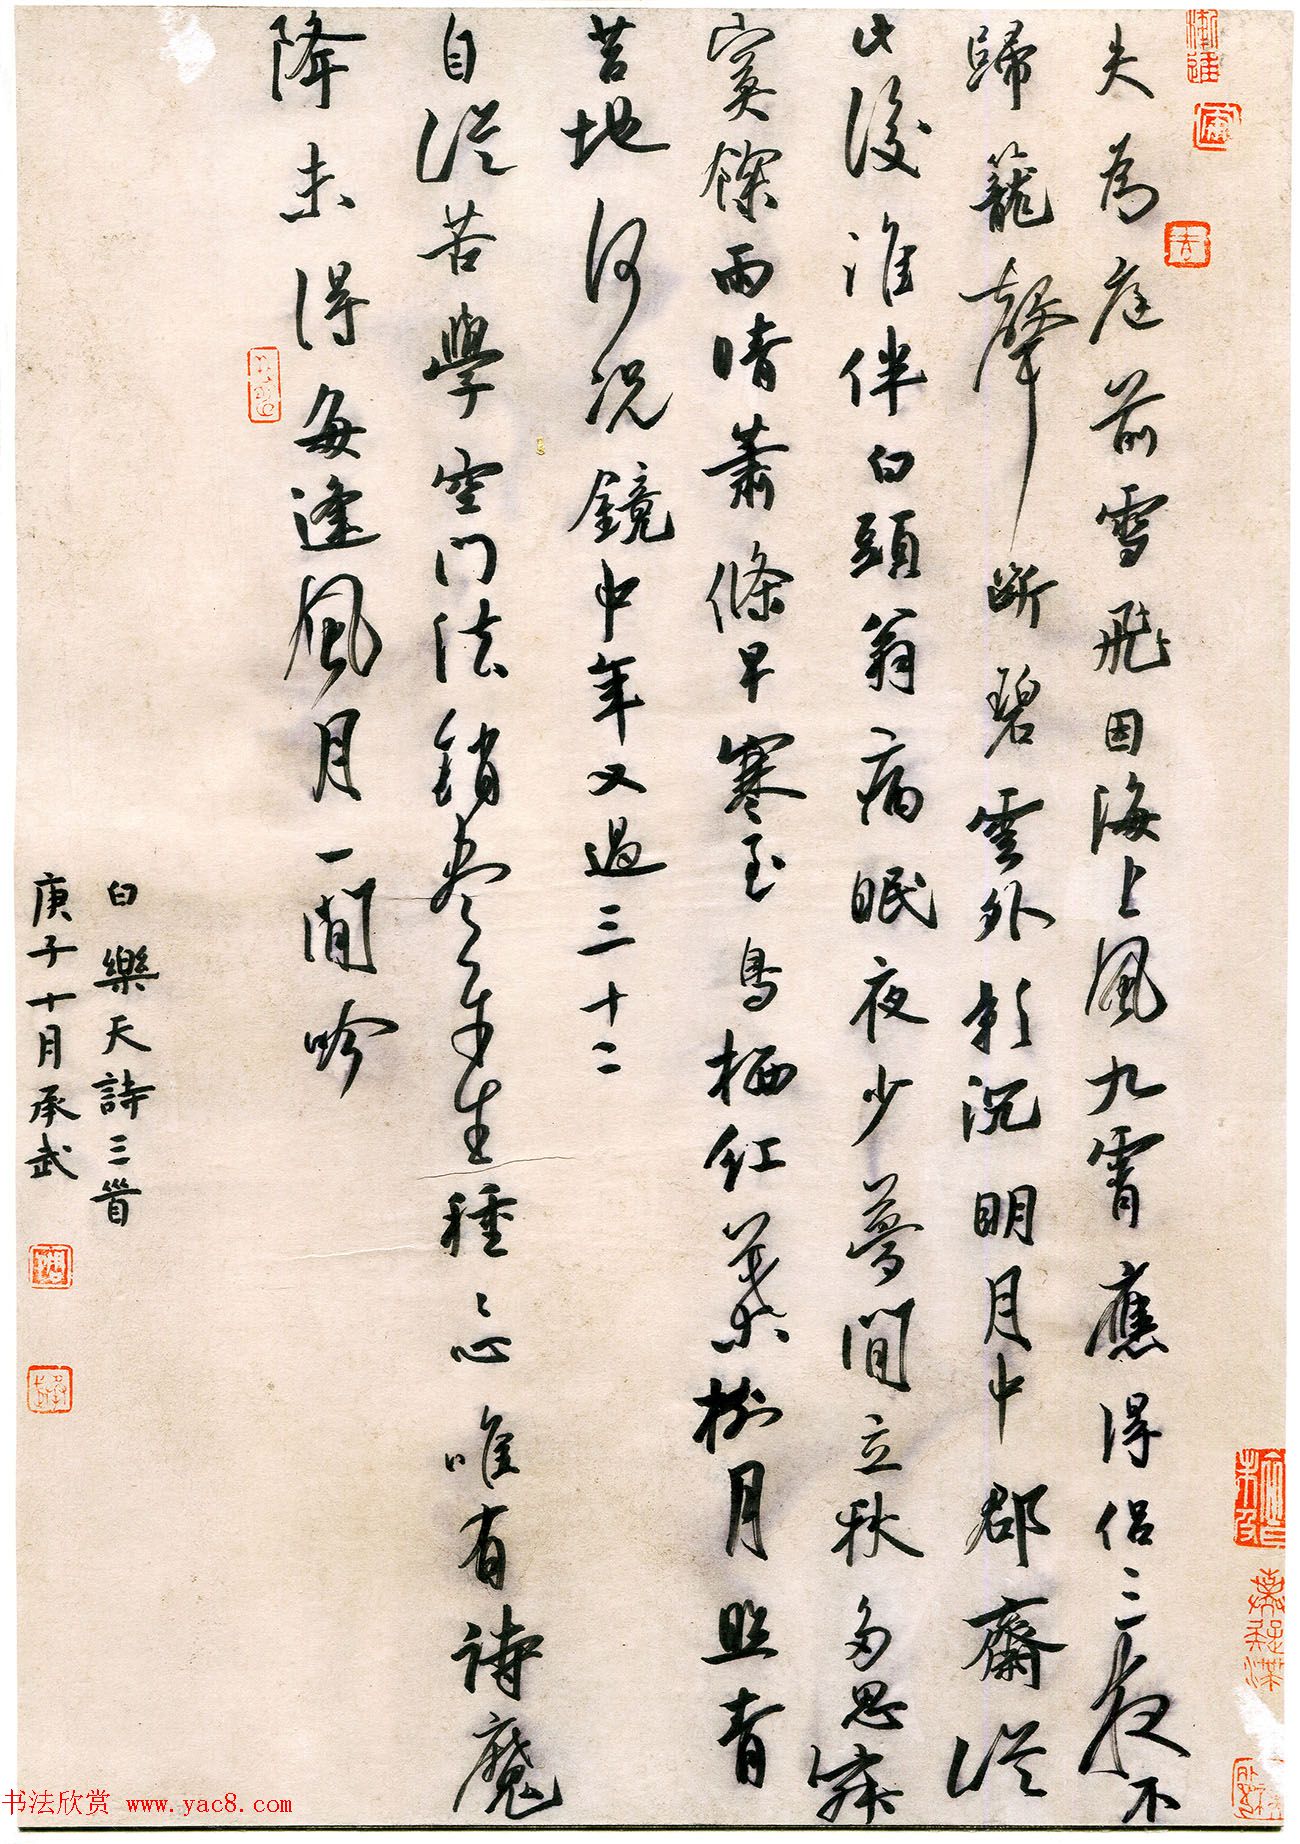 失為庭前雪飛因海上風九霄應得侶三夜不
歸籠聲斷碧雲外影沉明月中郡齋從
此後誰伴白頭翁病眠夜少夢閒立秋多思寂
寞餘雨晴蕭條早寒至鳥栖紅葉樹月照青
苔地何況鏡中年又過三十二
自從苦學空門法銷盡平生種々心唯有詩魔
降未得每逢風月一閒吟
白樂天詩三首
庚子十月承武
书法欣赏 www.yac8.com